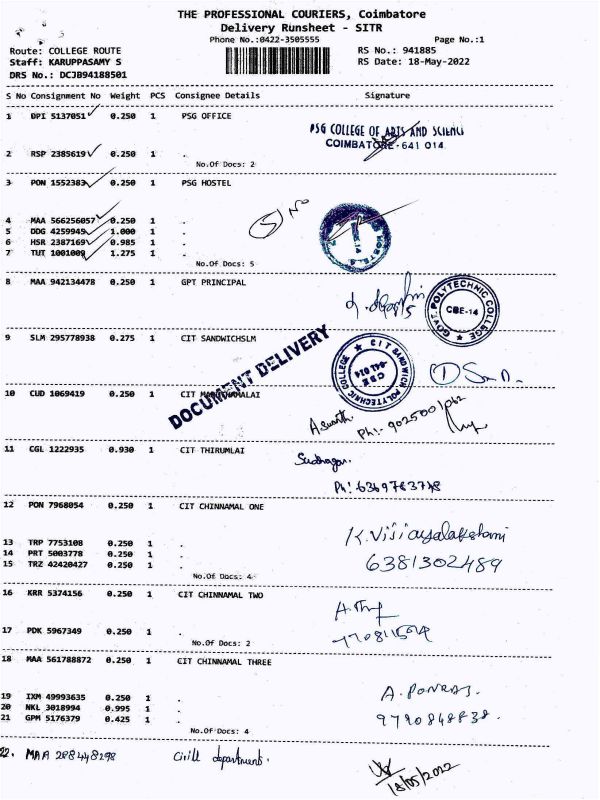 THE PROFESSIONAL COURIERS, Coimbatore
Delivery Runsheet - SITR
Phone No.:0422-3505555 Page No.:1
Route: COLLEGE ROUTE RS No.: 941885
Staff: KARUPPASAMY S RS Date: 18-May-2022
DRS No.: DCJB94188501
S No Consignment No Weight PCS Consignee Details Signature
1 BPI 5137051 0.250 1 PSG OFFICE
PSG COLLEGE OF ARTS AND SCIENCE
COIMBATORE - 641 014
2 RSP 2385619 0.250 1 .
No.Of Docs: 2
3 PON 1552383 0.250 1 PSG HOSTEL
5 No
4 MAA 566256057 0.250 1 .
5 DDG 4259945 1.000 1 .
6 HSR 2387169 0.985 1 .
7 TUT 1001009 1.275 1 .
No.Of Docs: 5
8 MAA 942134478 0.250 1 GPT PRINCIPAL
GOVT. POLYTECHNIC COLLEGE
CBE-14
9 SLM 295778938 0.275 1 CIT SANDWICHSLM
CIT SANDWICH POLYTECHNIC COLLEGE
CBE
641 014
1
DOCUMENT DELIVERY
10 CUD 1069419 0.250 1 CIT
Ph:- 9025001062
11 CGL 1222935 0.930 1 CIT THIRUMLAI
Ph: 6369783778
12 PON 7968054 0.250 1 CIT CHINNAMAL ONE
K. Vijayalakshmi
13 TRP 7753108 0.250 1 .
14 PRT 5003778 0.250 1 .
15 TRZ 42420427 0.250 1 .
6381302489
No.Of Docs: 4
16 KRR 5374156 0.250 1 CIT CHINNAMAL TWO
17 PDK 5967349 0.250 1 .
No.Of Docs: 2
18 MAA 561788872 0.250 1 CIT CHINNAMAL THREE
A. PONRAJ.
19 IXM 49993635 0.250 1 .
20 NKL 3018994 0.995 1 .
21 GPM 5176379 0.425 1 .
9790848838.
No.Of Docs: 4
22. MAA 288448298 Civill department.
18/05/2022